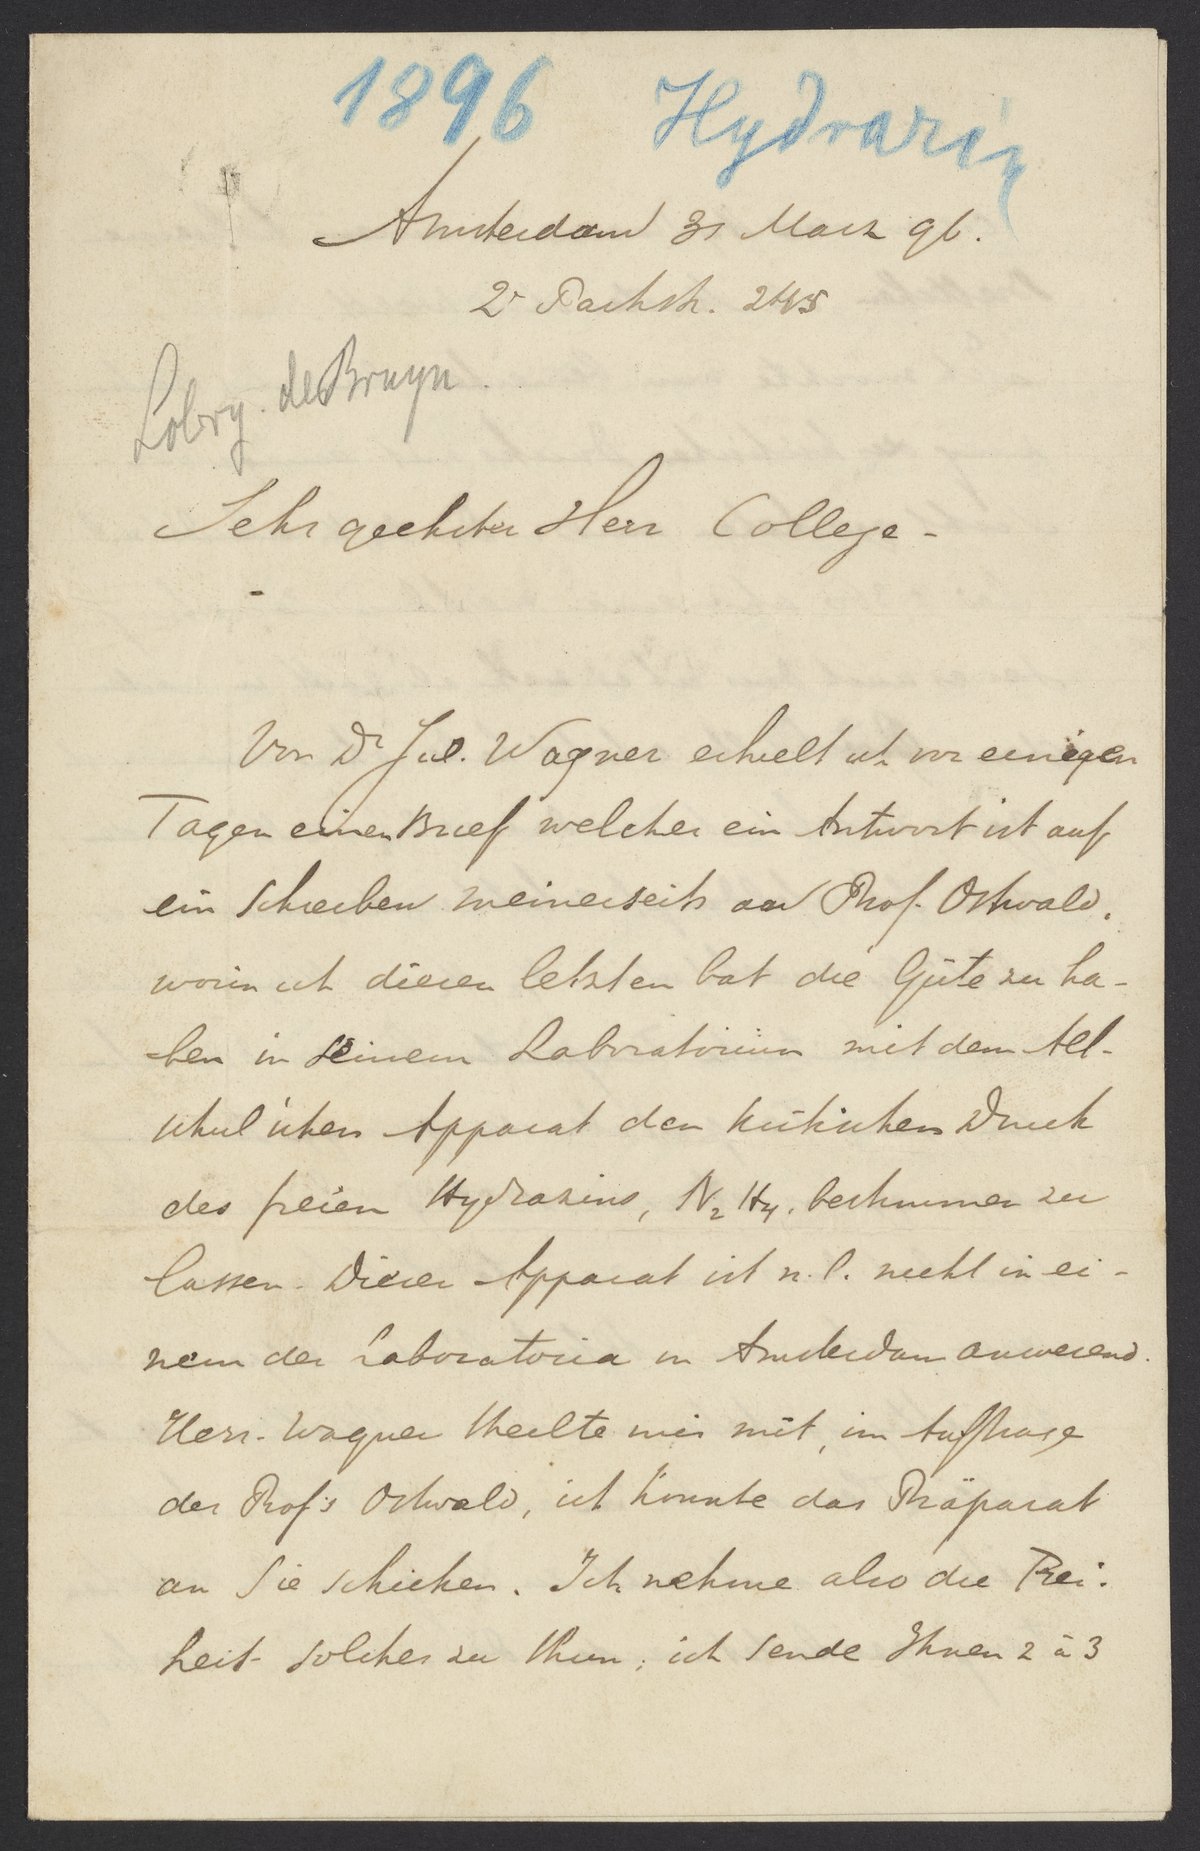 1896 Hydrazin
Amsterdam 31 März 96.
2e Parkstr.
Lobry de Bruyn.
Sehr geehrter Herr College -
Von Dr Jul. Wagner erhielt ich vor einigen
Tagen einen Brief welcher ein Antwort ist auf
ein Schreiben meinerseits an Prof. Ostwald,
worin ich diesen letzten bat die Güte zu ha-
ben in seinem Laboratorium mit dem Alt-
schul'schen Apparat den kritischen Druck
des freien Hydrazins, N₂H₄, bestimmen zu
lassen. Dieser Apparat ist n.l. nicht in ei-
nem der Laboratoria in Amsterdam anwesend.
Herr Wagner theilte mir mit, im Auftrage
des Prof's Ostwald, ich könnte das Präparat
an Sie schicken. Ich nehme also die Frei-
heit solches zu thun; ich sende Ihnen 2 à 3